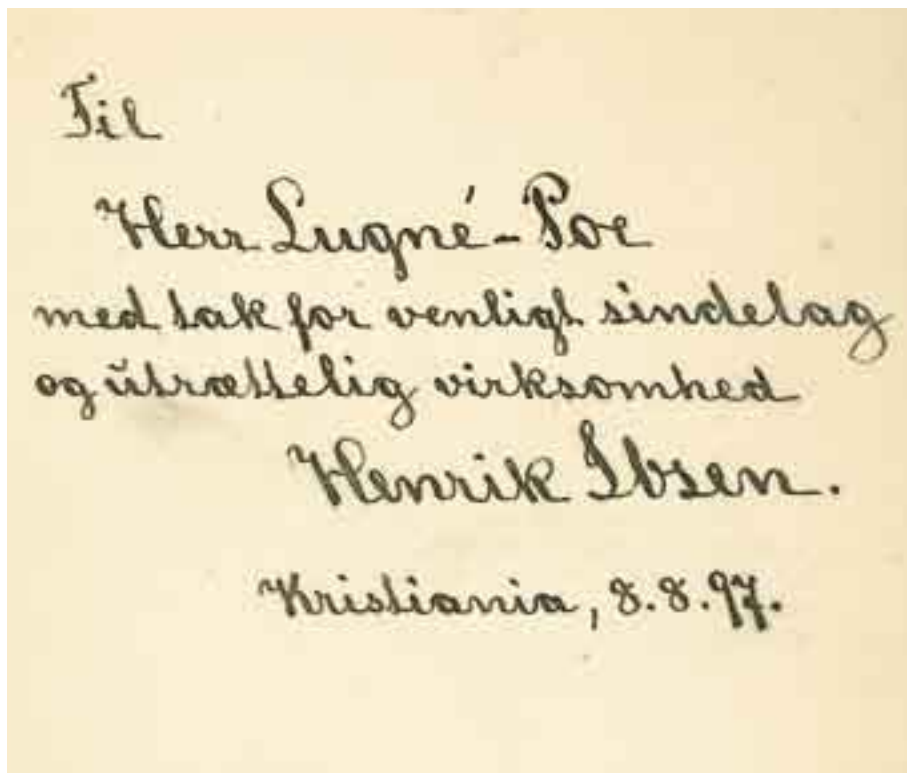 Til
Herr Lugné-Poe
med tak for venligt sindelag
og utrættelig virksomhed
Henrik Ibsen.
Kristiania, 8.8.97.